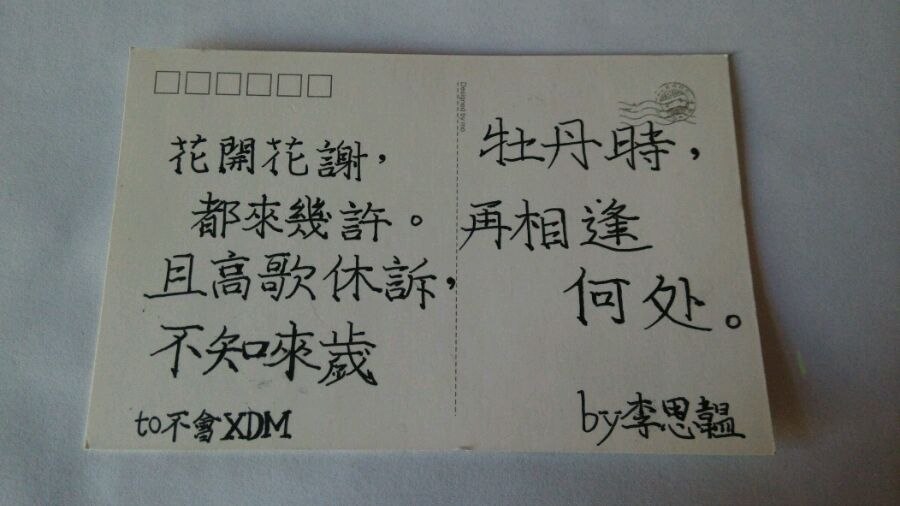 花開花謝，
都來幾許。
且高歌休訴，
不知來歲
to不會XDM
Designed by no
牡丹時，
再相逢
何处。
by李思韞